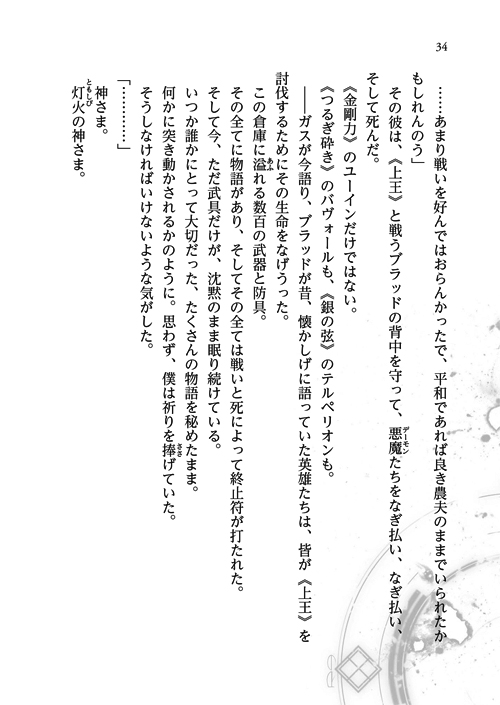 34
……あまり戦いを好んではおらんかったで、平和であれば良き農夫のままでいられたか
もしれんのう」
その彼は、《上王》と戦うブラッドの背中を守って、悪魔たちをなぎ払い、なぎ払い、
そして死んだ。
《金剛力》のユーインだけではない。
《つるぎ砕き》のバヴォールも、《銀の弦》のテルペリオンも。
――ガスが今語り、ブラッドが昔、懐かしげに語っていた英雄たちは、皆が《上王》を
討伐するためにその生命をなげうった。
この倉庫に溢れる数百の武器と防具。
その全てに物語があり、そしてその全ては戦いと死によって終止符が打たれた。
そして今、ただ武具だけが、沈黙のまま眠り続けている。
いつか誰かにとって大切だった、たくさんの物語を秘めたまま。
何かに突き動かされるかのように。思わず、僕は祈りを捧げていた。
そうしなければいけないような気がした。
「…………」
神さま。
灯火の神さま。